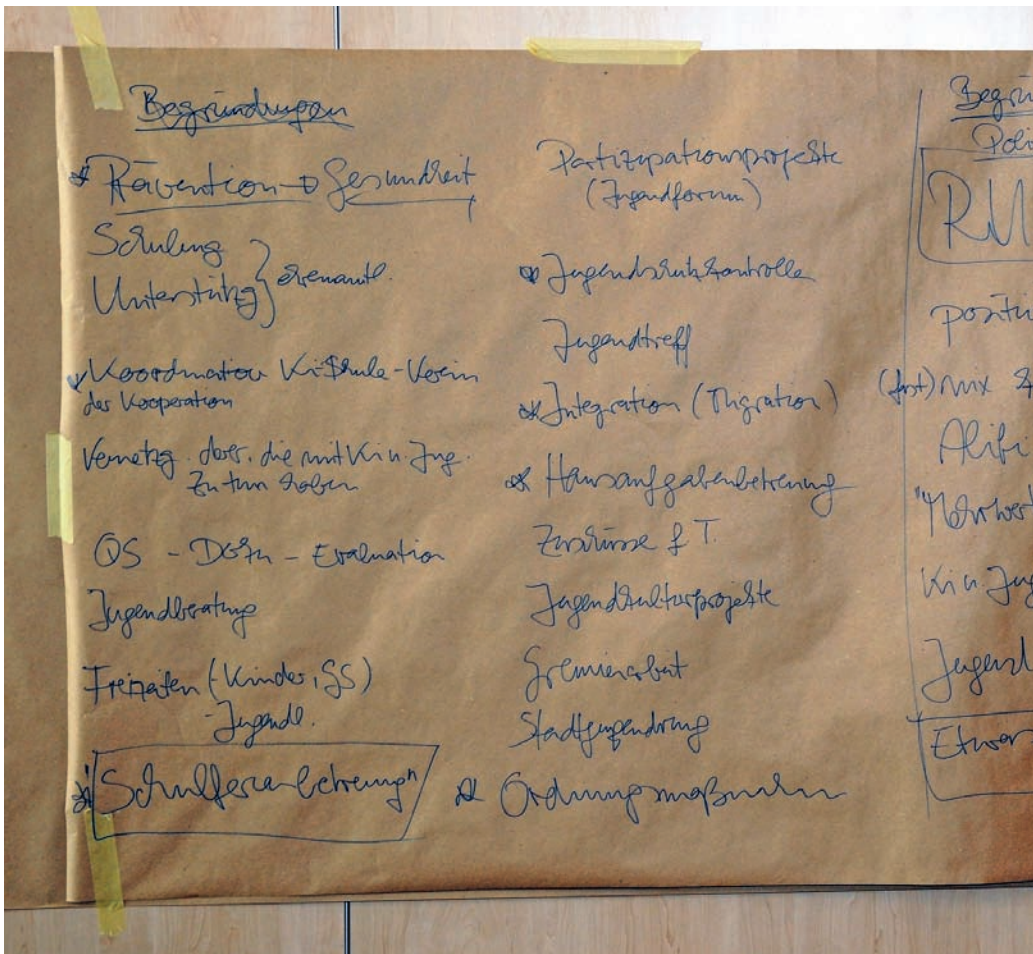 Begründungen
Prävention → Gesundheit
Schulung
Unterstützg } ehrenamtl.
Koordination Ki-Schule-Verein
der Kooperation
Vernetzg. derer, die mit Ki u. Jug.
zu tun haben
QS - Doku - Evaluation
Jugendberatung
Freizeiten (-Kinder, GS)
- Jugendl.
"Schulferienbetreung"
Partizipationsprojekte
(Jugendforum)
Jugendschutzkontrolle
Jugendtreff
Integration (Migration)
Hausaufgabenbetreuung
Zuschüsse f. T.
Jugendkulturprojekte
Gremienarbeit
Stadtjugendring
Ordnungsmaßnahm
Begrü
Poli
RU
positi
(fast) nix
Alibi
"Mehrwert
Ki u. Jug
Jugend
Etwas